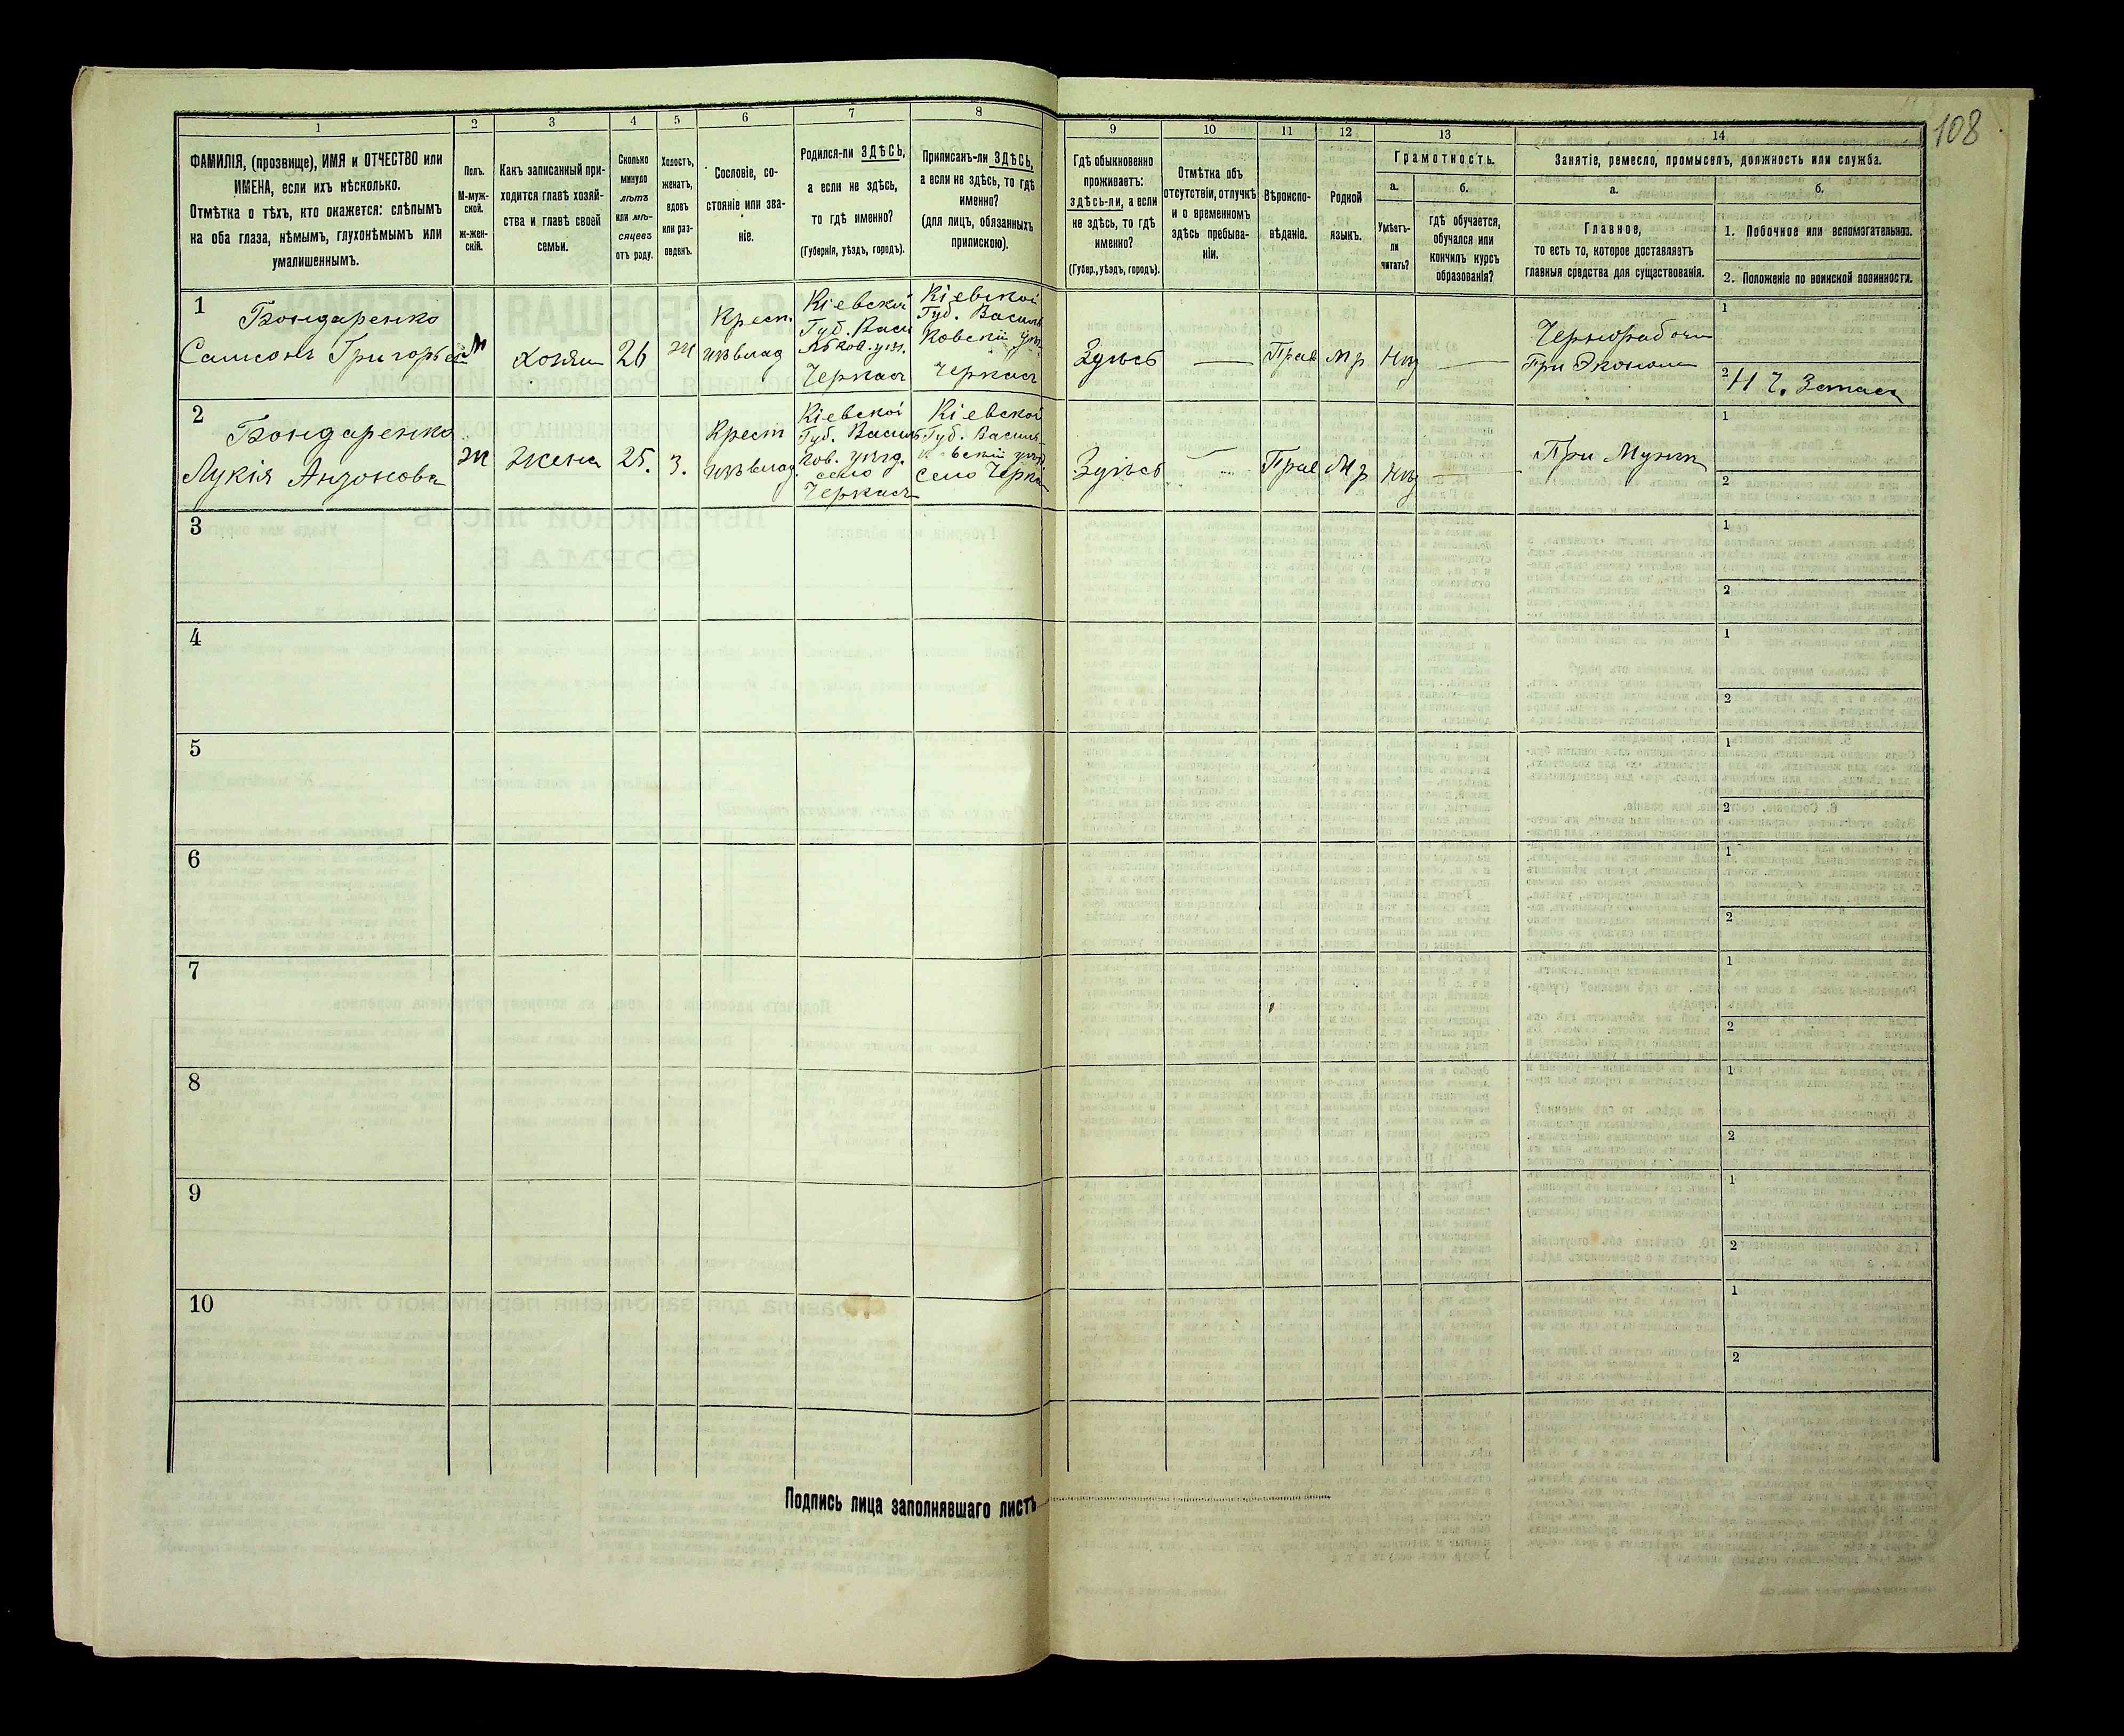 108
1 2 3 4 5 6 7 8 9 10 11 12 13 14
ФАМИЛІЯ, (прозвище), ИМЯ и ОТЧЕСТВО или
ИМЕНА, если ихъ нѣсколько.
Отмѣтка о тѣхъ, кто окажется: слѣпымъ
на оба глаза, нѣмымъ, глухонѣмымъ или
умалишеннымъ.
Полъ.
М-муж-
ской.
ж-жен-
скій.
Какъ записанный при-
ходится главѣ хозяй-
ства и главѣ своей
семьи.
Сколько
минуло
лѣтъ
или мѣ-
сяцевъ
отъ роду.
Холостъ,
женатъ,
вдовъ
или раз-
веденъ.
Сословіе, со-
стояніе или зва-
ніе.
Родился-ли ЗДѢСЬ,
а если не здѣсь,
то гдѣ именно?
(Губернія, уѣздъ, городъ).
Приписанъ-ли ЗДѢСЬ,
а если не здѣсь, то гдѣ
именно?
(для лицъ, обязанныхъ
припискою).
Гдѣ обыкновенно
проживаетъ:
здѣсь-ли, а если
не здѣсь, то гдѣ
именно?
(Губер., уѣздъ, городъ).
Отмѣтка объ
отсутствіи, отлучкѣ
и о временномъ
здѣсь пребыва-
ніи.
Вѣроиспо-
вѣданіе.
Родной
языкъ.
Грамотность.
а.
Умѣетъ-
ли
читать?
б.
гдѣ обучается,
обучался или
кончилъ курсъ
образованія?
Занятіе, ремесло, промыселъ, должность или служба.
а.
Главное,
то есть то, которое доставляетъ
главныя средства для существованія.
б.
1. Побочное или вспомогательное.
2. Положеніе по воинской повинности.
1
Бондаренко
Самсонъ Григорьев
М
хозяин
26
Ж
Крест.
изъ влад
Кіевской
Губ. Васи
льков. уѣз.
Черкас
Кіевской
Губ. Василь
ковскій уѣз.
Черкас
Здѣсь
—
Прав
Мр
Нѣт
—
Чернорабочи
При Эконом
1
2
Н Ч. Запаса
2
Бондаренко
Лукія Андонова
Ж
Жена
25.
З.
Крест
изъ влад.
Кіевскоі
Губ. Василь
ков. уѣзд.
село
Черкас
Кіевской
Губ. Василь-
село Черка
Здѣсь
Прав
Мр
Нѣт
При Мужѣ
1
2
3
1
2
4
1
2
5
1
2
6
1
2
7
1
2
8
1
2
9
1
2
10
1
2
Подпись лица заполнявшаго листъ